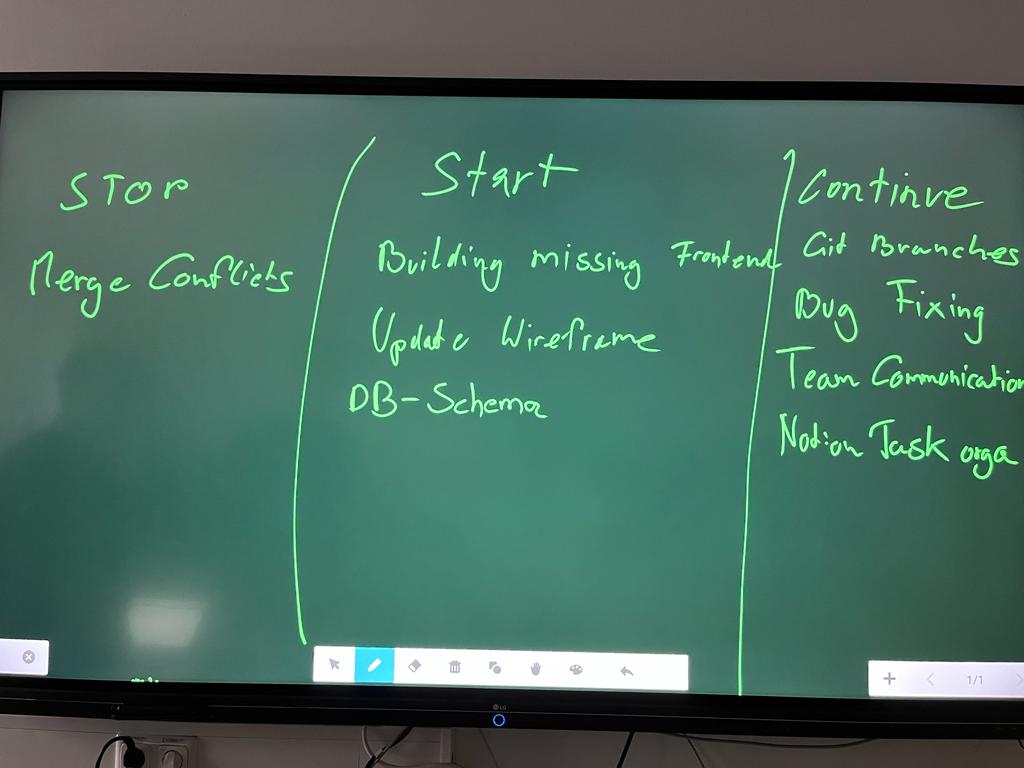 STOP
Merge Conflicts
Start
Building missing Frontend
Update Wireframe
DB-Schema
Continue
Git Branches
Bug Fixing
Team Communication
Notion Task orga
1/1
LG